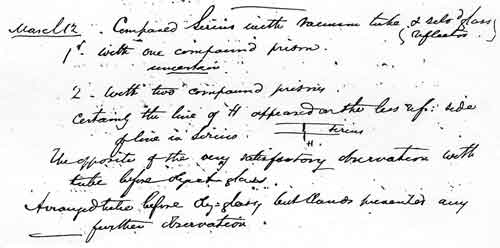 March 12. Compared Sirius with vacuum tube & silvd glass
reflector
1st with one compound prism.
uncertain
2 - with two compound prisms
Certainly the line of H appeared on the less ref: side
of line in Sirius Sirius
H
The opposite of the very satisfactory observation with
tube before object glass.
Arranged tube before obj-glass, but clouds prevented any
further observation.